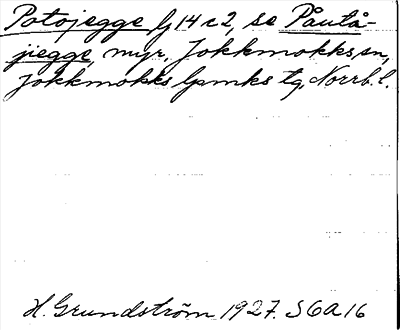 Potojegge fj 14 c 2, se Påutå-
jiegge, myr, Jokkmokks sn,
Jokkmokks lpmks tg, Norrb. l.
H. Grundström 1927. S6A16